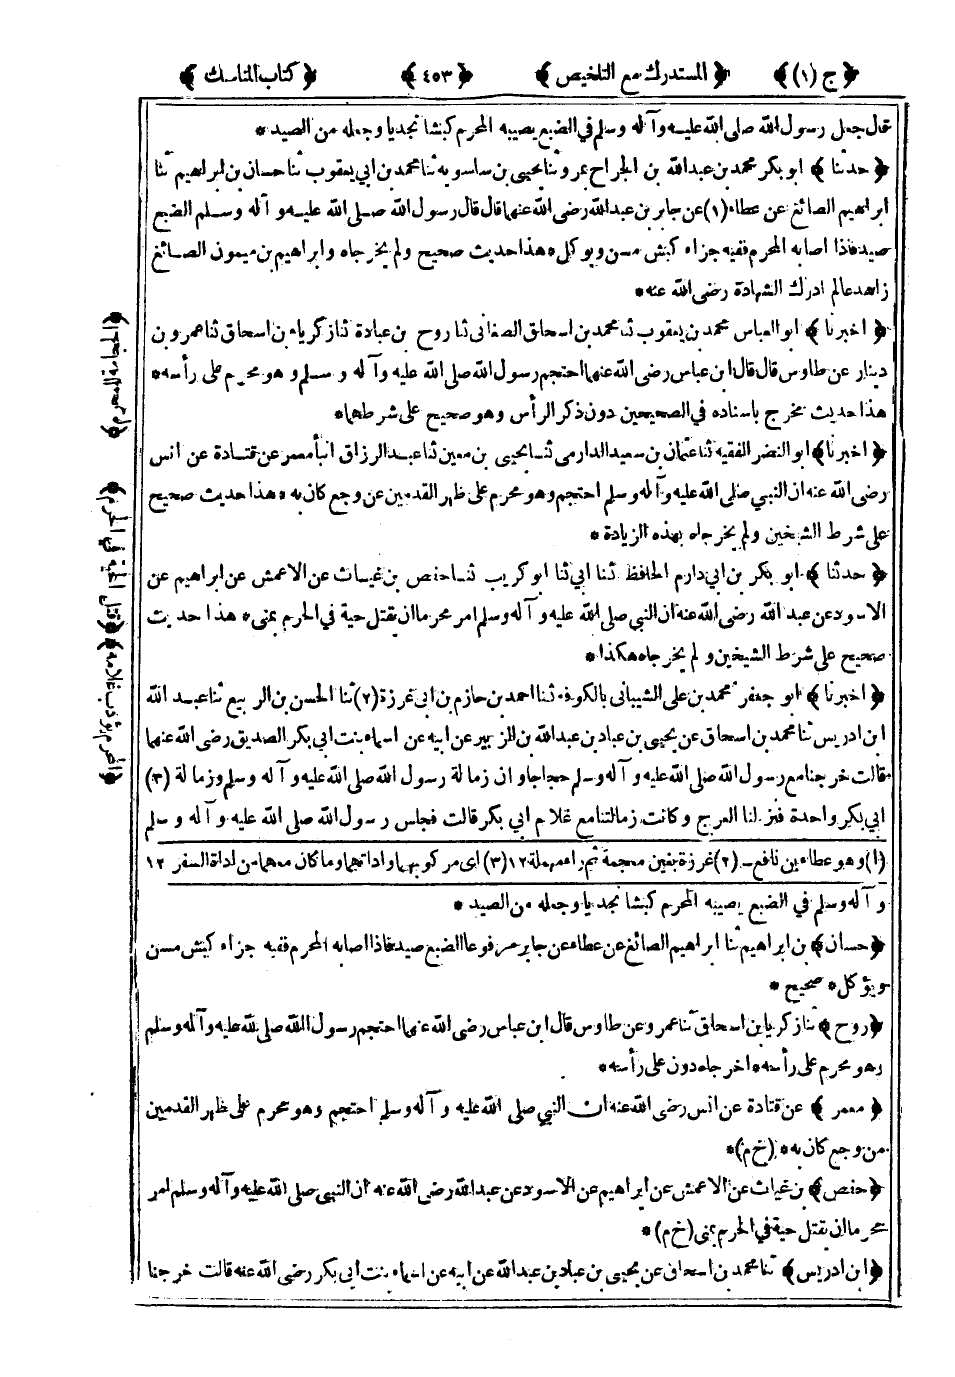 ﴿ج (١)﴾ ﴿المستدرك مع التلخيص﴾ ﴿٤٥٣﴾ ﴿كتاب المناسك﴾
قال جعل رسول الله صلى الله عليه وآله وسلم في الضبع يصيبه المحرم كبشا نجديا وجعله من الصيد *
﴿حدثنا﴾ ابو بكر محمد بن عبدالله بن الجراح بمرو ثنا يحيى بن ساسويه ثنا محمد بن ابي يعقوب ثنا حسان بن ابراهيم ثنا
ابراهيم الصائغ عن عطاء (١) عن جابر بن عبدالله رضى الله عنهما قال قال رسول الله صلى الله عليه و آله وسلم الضبع
صيد فاذا اصابه المحرم ففيه جزاء كبش مسن ويوكل * هذا حديث صحيح ولم يخرجاه وابراهيم بن ميمون الصائغ
زاهد عالم ادرك الشهادة رضى الله عنه *
﴿اخبرنا﴾ ابو العباس محمد بن يعقوب ثنا محمد بن اسحاق الصغانى ثنا روح بن عبادة ثنا زكرياء بن اسحاق ثنا عمرو بن
دينار عن طاوس قال قال ابن عباس رضى الله عنهما احتجم رسول الله صلى الله عليه وآله و سلم و هو محرم على رأسه *
هذا حديث مخرج باسناده في الصحيحين دون ذكر الرأس وهو صحيح على شرطهما *
﴿اخبرنا﴾ ابو النضر الفقيه ثنا عثمان بن سعيد الدارمى ثنا يحيى بن معين ثنا عبد الرزاق انبأ معمر عن قتادة عن انس
رضى الله عنه ان النبي صلى الله عليه و آله وسلم احتجم وهو محرم على ظهر القدمين عن وجع كان به * هذا حديث صحيح
على شرط الشيخين ولم يخرجاه بهذه الزيادة *
﴿حدثنا﴾ ابو بكر بن ابي دارم الحافظ ثنا ابي ثنا ابو كريب ثنا حفص بن غياث عن الاعمش عن ابراهيم عن
الاسود عن عبد الله رضى الله عنه ان النبي صلى الله عليه و آله وسلم امر محرما ان يقتل حية في الحرم بمنى * هذا حديث
صحيح على شرط الشيخين و لم يخرجاه هكذا *
﴿اخبرنا﴾ ابو جعفر محمد بن على الشيبانى بالكوفة ثنا احمد بن حازم بن ابي غرزة (٢) ثنا الحسن بن الربيع ثنا عبد الله
ابن ادريس ثنا محمد بن اسحاق عن يحيى بن عباد بن عبدالله بن الزبير عن ابيه عن اسماء بنت ابي بكر الصديق رضى الله عنهما
قالت خرجنا مع رسول الله صلى الله عليه و آله وسلم حجاجا و ان زمالة رسول الله صلى الله عليه و آله وسلم و زمالة (٣)
ابي بكر واحدة فنزلنا العرج وكانت زمالتنا مع غلام ابي بكر قالت فجلس رسول الله صلى الله عليه و آله و سلم
(١) وهو عطاء بن نافع - (٢) غرزة بغين معجمة ثم راء مهملة ١٢ (٣) اى مركوبهما واداتهما وما كان معهما من اداة السفر ١٢
و آله وسلم في الضبع يصيبه المحرم كبشا نجديا وجعله من الصيد *
﴿حسان﴾ بن ابراهيم ثنا ابراهيم الصائغ عن عطاء عن جابر مرفوعا الضبع صيد فاذا اصابه المحرم ففيه جزاء كبش مسن
ويؤكل * صحيح *
﴿روح﴾ ثنا زكريا بن اسحاق ثنا عمرو عن طاوس قال ابن عباس رضى الله عنهما احتجم رسول الله صلى الله عليه وآله وسلم
وهو محرم على رأسه * اخرجاه دون على رأسه *
﴿معمر﴾ عن قتادة عن انس رضى الله عنه ان النبي صلى الله عليه و آله وسلم احتجم وهو محرم على ظهر القدمين
من وجع كان به * (خ م) *
﴿حفص﴾ بن غياث عن الاعمش عن ابراهيم عن الاسود عن عبدالله رضى الله عنه ان النبي صلى الله عليه وآله وسلم امر
محرما ان يقتل حية في الحرم بمنى (خ م) *
﴿ابن ادريس﴾ ثنا محمد بن اسحاق عن يحيى بن عباد بن عبدالله عن ابيه عن اسماء بنت ابي بكر رضى الله عنه قالت خرجنا
﴿قتل الحية في الحرم﴾
﴿المحرم يؤدب غلامه﴾